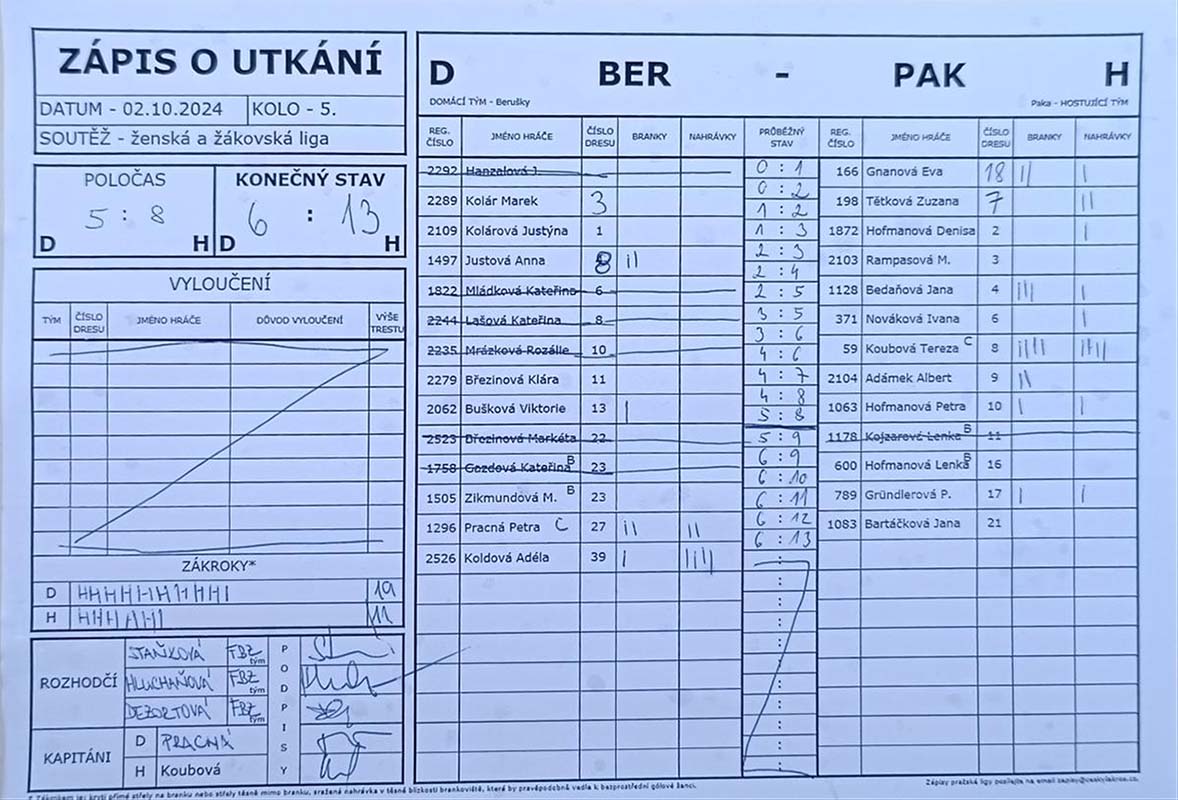 ZÁPIS O UTKÁNÍ
DATUM - 02.10.2024 KOLO - 5.
SOUTĚŽ - ženská a žákovská liga
POLOČAS KONEČNÝ STAV
5 : 8 6 : 13
D H D H
VYLOUČENÍ
TÝM ČÍSLO DRESU JMÉNO HRÁČE DŮVOD VYLOUČENÍ VÝŠE TRESTU
ZÁKROKY*
D 19
H 11
ROZHODČÍ
STAŇKOVÁ FBZ tým
HLUCHAŇOVÁ FBZ tým
DEZORTOVÁ FBZ tým
PODPISY
KAPITÁNI
D PRACNÁ
H Koubová
D BER - PAK H
DOMÁCÍ TÝM - Berušky Paka - HOSTUJÍCÍ TÝM
REG. ČÍSLO JMÉNO HRÁČE ČÍSLO DRESU BRANKY NAHRÁVKY PRŮBĚŽNÝ STAV REG. ČÍSLO JMÉNO HRÁČE ČÍSLO DRESU BRANKY NAHRÁVKY
2292 Hanzalová J.
2289 Kolár Marek 3
2109 Kolárová Justýna 1
1497 Justová Anna 8 II
1822 Mládková Kateřina 6
2244 Lašová Kateřina 8
2235 Mrázková Rozálie 10
2279 Březinová Klára 11
2062 Bušková Viktorie 13 I
2523 Březinová Markéta 22
1758 Gozdová Kateřina B 23
1505 Zikmundová M. B 23
1296 Pracná Petra C 27 II II
2526 Koldová Adéla 39 I IIII
0 : 1
0 : 2
1 : 2
1 : 3
2 : 3
2 : 4
2 : 5
3 : 5
3 : 6
4 : 6
4 : 7
4 : 8
5 : 8
5 : 9
6 : 9
6 : 10
6 : 11
6 : 12
6 : 13
166 Gnanová Eva 18 II I
198 Tětková Zuzana 7 II
1872 Hofmanová Denisa 2 I
2103 Rampasová M. 3
1128 Bedaňová Jana 4 III I
371 Nováková Ivana 6 I
59 Koubová Tereza C 8 IIII
2104 Adámek Albert 9 II
1063 Hofmanová Petra 10 I I
1178 Kojzarová Lenka B 11
600 Hofmanová Lenka B 16
789 Gründlerová P. 17 I I
1083 Bartáčková Jana 21
* Zákrokem jsou krytí přímé střely na branku nebo střely těsně mimo branku, sražená nahrávka v těsné blízkosti brankoviště, které by pravěpodobně vedla k bezprostřední gólové šanci.
Zápisy pražské ligy posílejte na email zapisy@ceskylakros.cz.